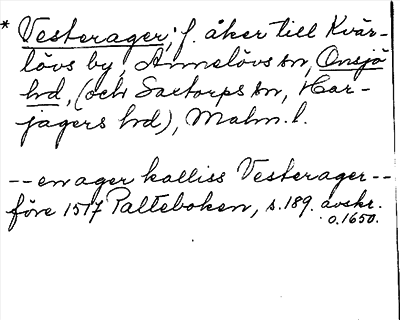 * Vesterager, f. åker till Kvär-
lövs by, Annelövs sn, Onsjö
hd, (och Saxtorps sn, Har-
jagers hd), Malm. l.
-- en ager kalliss Vesterager --
före 1517 Palteboken, s. 189. avskr.
o. 1650.